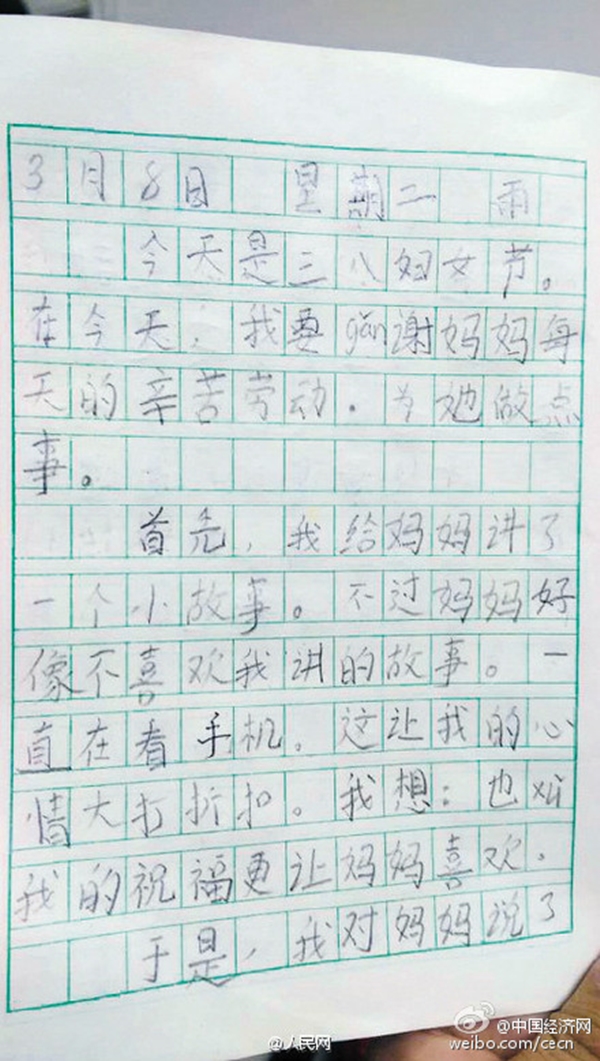 3月8日 星期二 雨
今天是三八妇女节。
在今天,我要gǎn谢妈妈每
天的辛苦劳动.为她做点
事。
首先,我给妈妈讲了
一个小故事。不过妈妈好
像不喜欢我讲的故事。一
直在看手机。这让我的心
情大打折扣。我想:也xǔ
我的祝福更让妈妈喜欢.
于是,我对妈妈说了
@人民网
@中国经济网
weibo.com/cecn